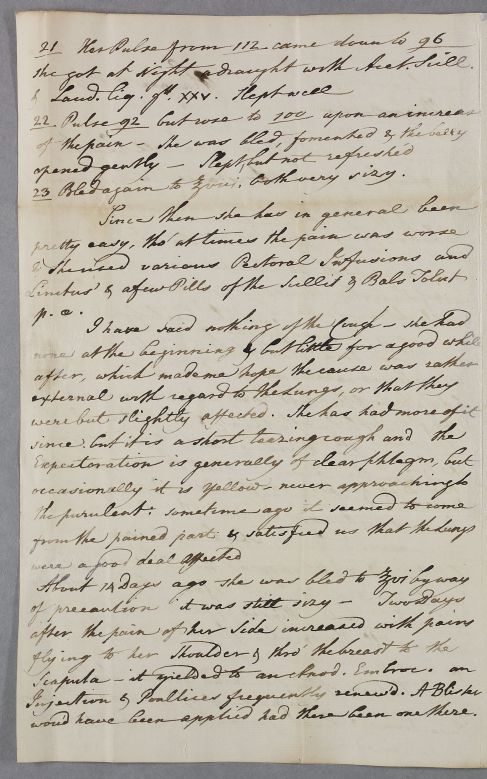 21 Her Pulse from 112 came down to 96
She got at Night a draught with Acet. Scill.
& Laud. Liq. gtt. xxv. Slept well
22 Pulse 92 but rose to 100 upon an increas
of the pain - She was bled, fomented & the belly
opened gently - Slept, but not refreshed
23 Bled again to ℥viii. both very sizy.
Since then she has in general been
pretty easy, tho' at times the pain was worse
& She used various Pectoral Infusions and
Linctus' & a few Pills of the Scillit & Bals Tolut
p. æ.
I have said nothing of the Cough - she had
none at the beginning & but little for a good while
after, which made me hope the cause was rather
external with regard to the Lungs, or that they
were but slightly affected. She has had more of it
since but it is a short teezing cough and the
Expectoration is generally of clear phlegm, but
occasionally it is Yellow - never approaching to
the purulent: sometime ago it seemed to come
from the pained part & satisfied us that the Lungs
were a good deal affected
About 14 Days ago she was bled to ℥vi by way
of precaution it was still sizy - Two Days
after the pain of her Side increased with pains
flying to her Shoulder & thro' the breast to the
Scapula - it yielded to an Anod. Embroc. an
Injection & Poultices frequently renew'd. A Blister
woud have been applied had there been one there.